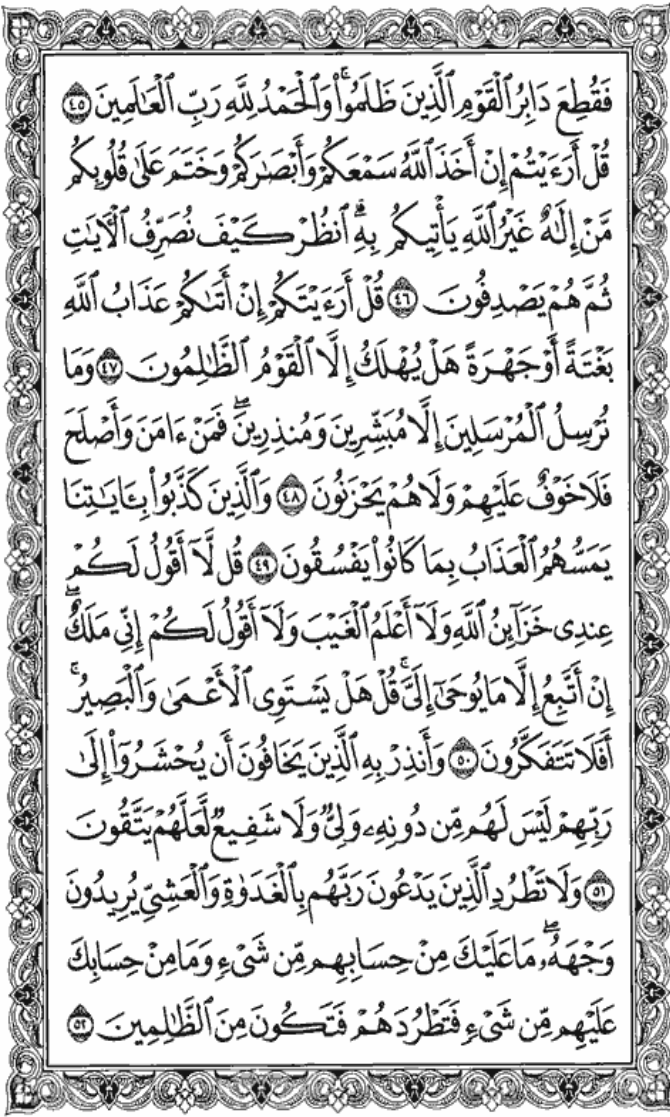 فَقُطِعَ دَابِرُ ٱلْقَوْمِ ٱلَّذِينَ ظَلَمُوا۟ ۚ وَٱلْحَمْدُ لِلَّهِ رَبِّ ٱلْعَـٰلَمِينَ ٤٥
قُلْ أَرَءَيْتُمْ إِنْ أَخَذَ ٱللَّهُ سَمْعَكُمْ وَأَبْصَـٰرَكُمْ وَخَتَمَ عَلَىٰ قُلُوبِكُم
مَّنْ إِلَـٰهٌ غَيْرُ ٱللَّهِ يَأْتِيكُم بِهِ ۗ ٱنظُرْ كَيْفَ نُصَرِّفُ ٱلْـَٔايَـٰتِ
ثُمَّ هُمْ يَصْدِفُونَ ٤٦ قُلْ أَرَءَيْتَكُمْ إِنْ أَتَىٰكُمْ عَذَابُ ٱللَّهِ
بَغْتَةً أَوْ جَهْرَةً هَلْ يُهْلَكُ إِلَّا ٱلْقَوْمُ ٱلظَّـٰلِمُونَ ٤٧ وَمَا
نُرْسِلُ ٱلْمُرْسَلِينَ إِلَّا مُبَشِّرِينَ وَمُنذِرِينَ ۖ فَمَنْ ءَامَنَ وَأَصْلَحَ
فَلَا خَوْفٌ عَلَيْهِمْ وَلَا هُمْ يَحْزَنُونَ ٤٨ وَٱلَّذِينَ كَذَّبُوا۟ بِـَٔايَـٰتِنَا
يَمَسُّهُمُ ٱلْعَذَابُ بِمَا كَانُوا۟ يَفْسُقُونَ ٤٩ قُل لَّآ أَقُولُ لَكُمْ
عِندِى خَزَآئِنُ ٱللَّهِ وَلَآ أَعْلَمُ ٱلْغَيْبَ وَلَآ أَقُولُ لَكُمْ إِنِّى مَلَكٌ ۖ
إِنْ أَتَّبِعُ إِلَّا مَا يُوحَىٰٓ إِلَىَّ ۚ قُلْ هَلْ يَسْتَوِى ٱلْأَعْمَىٰ وَٱلْبَصِيرُ ۚ
أَفَلَا تَتَفَكَّرُونَ ٥٠ وَأَنذِرْ بِهِ ٱلَّذِينَ يَخَافُونَ أَن يُحْشَرُوٓا۟ إِلَىٰ
رَبِّهِمْ لَيْسَ لَهُم مِّن دُونِهِۦ وَلِىٌّ وَلَا شَفِيعٌ لَّعَلَّهُمْ يَتَّقُونَ
٥١ وَلَا تَطْرُدِ ٱلَّذِينَ يَدْعُونَ رَبَّهُم بِٱلْغَدَوٰةِ وَٱلْعَشِىِّ يُرِيدُونَ
وَجْهَهُۥ ۖ مَا عَلَيْكَ مِنْ حِسَابِهِم مِّن شَىْءٍ وَمَا مِنْ حِسَابِكَ
عَلَيْهِم مِّن شَىْءٍ فَتَطْرُدَهُمْ فَتَكُونَ مِنَ ٱلظَّـٰلِمِينَ ٥٢